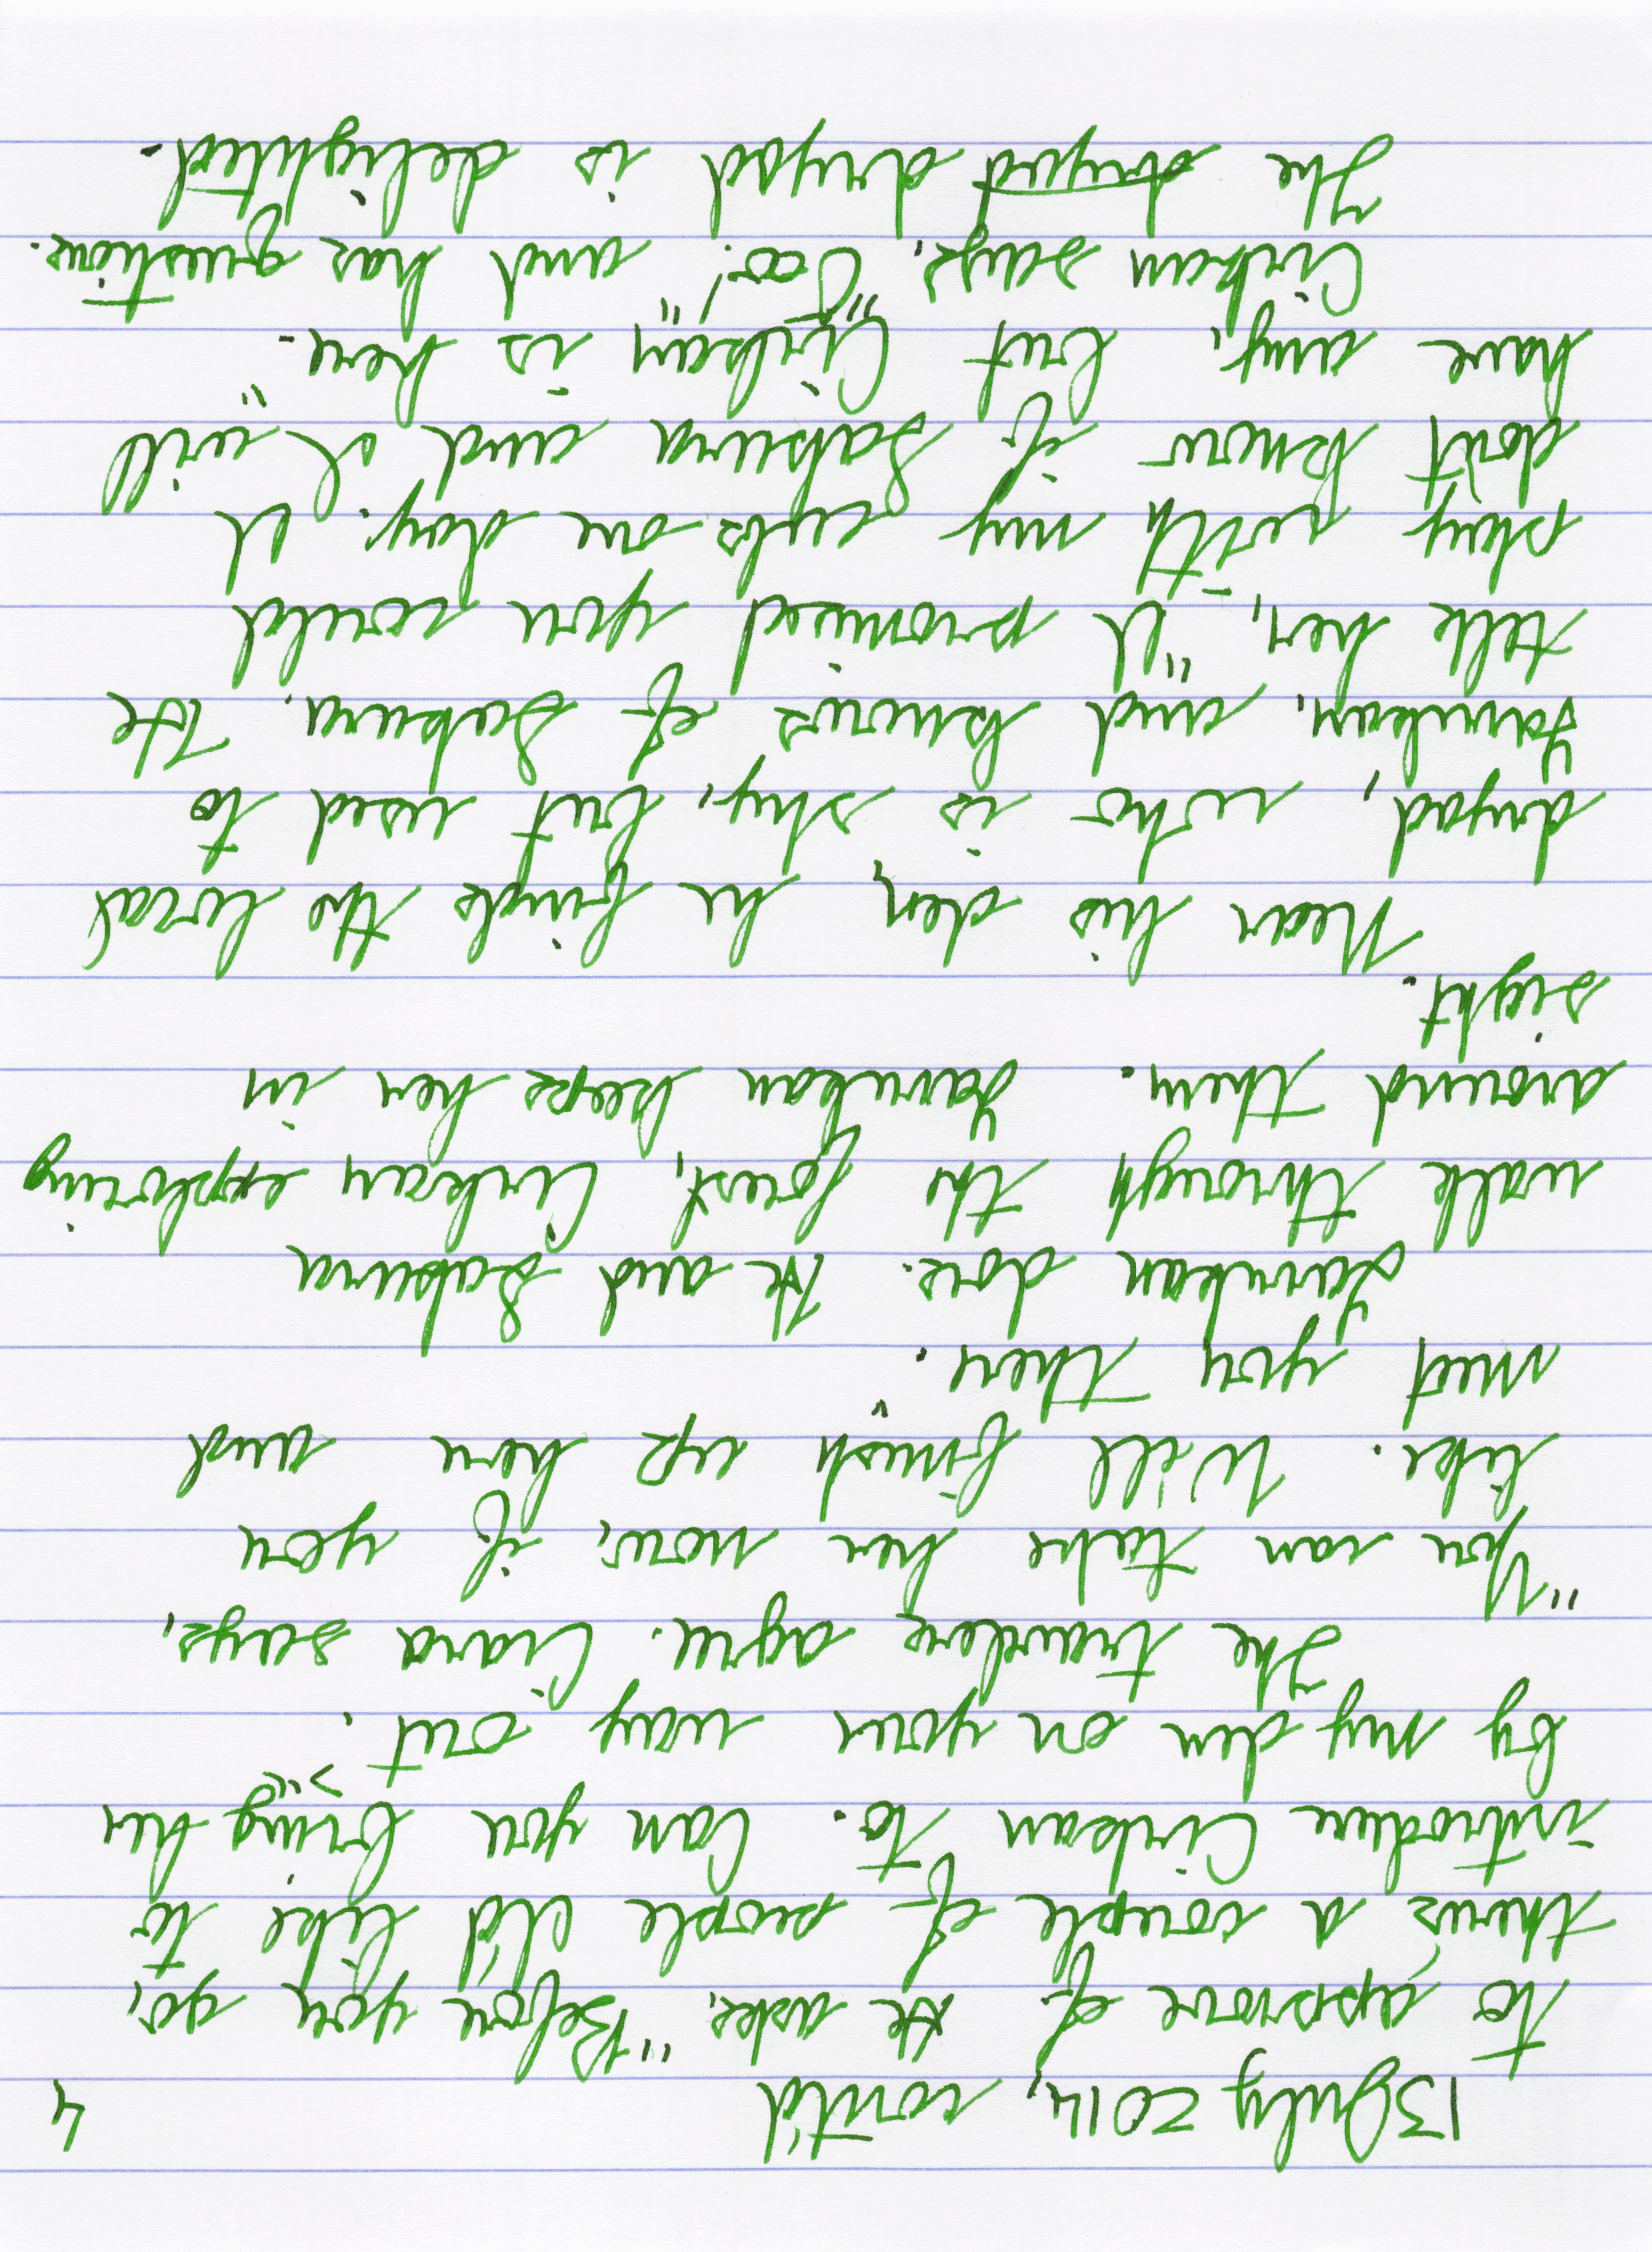 13 July 2014, cont'd 4
to approve of. He asks, "Before you go,
there's a couple of people I'd like to
introduce Cirkan to. Can you bring her
by my den on your way out?"
The traders agree. Ciara says,
"You can take her now, if you
like. We'll finish up here and
meet you there."
Zarukan does. He and Sakura
walk through the forest, Cirkan exploring
around them. Zarukan keeps her in
sight.
Near his den, he finds the local
dryad, who is shy, but used to
Zarukan, and knows of Sakura. He
tells her, "I promised you could
play with my cubs one day. I
don't know if Sakura and I will
have any, but Cirkan is here."
Cirkan says, "Ooo!" and has questions.
The dryad dryad is delighted.